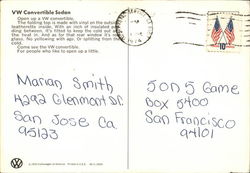 VW Convertible Sedan
Open up a VW convertible.
The folding top is made with vinyl on the outside,
leatherette inside. With an inch of insulated
ding between. It's fitted to keep the cold out and
the heat in. And as for that rear window it's
glass. No yellowing with age. Or splitting from
cold.
Come see the VW convertible.
For people who like to open up a little.
10c
Marian Smith
4292 Glenmont Dr.
San Jose Ca.
95123
5 on 5 Game
Box 5400
San Francisco
94101